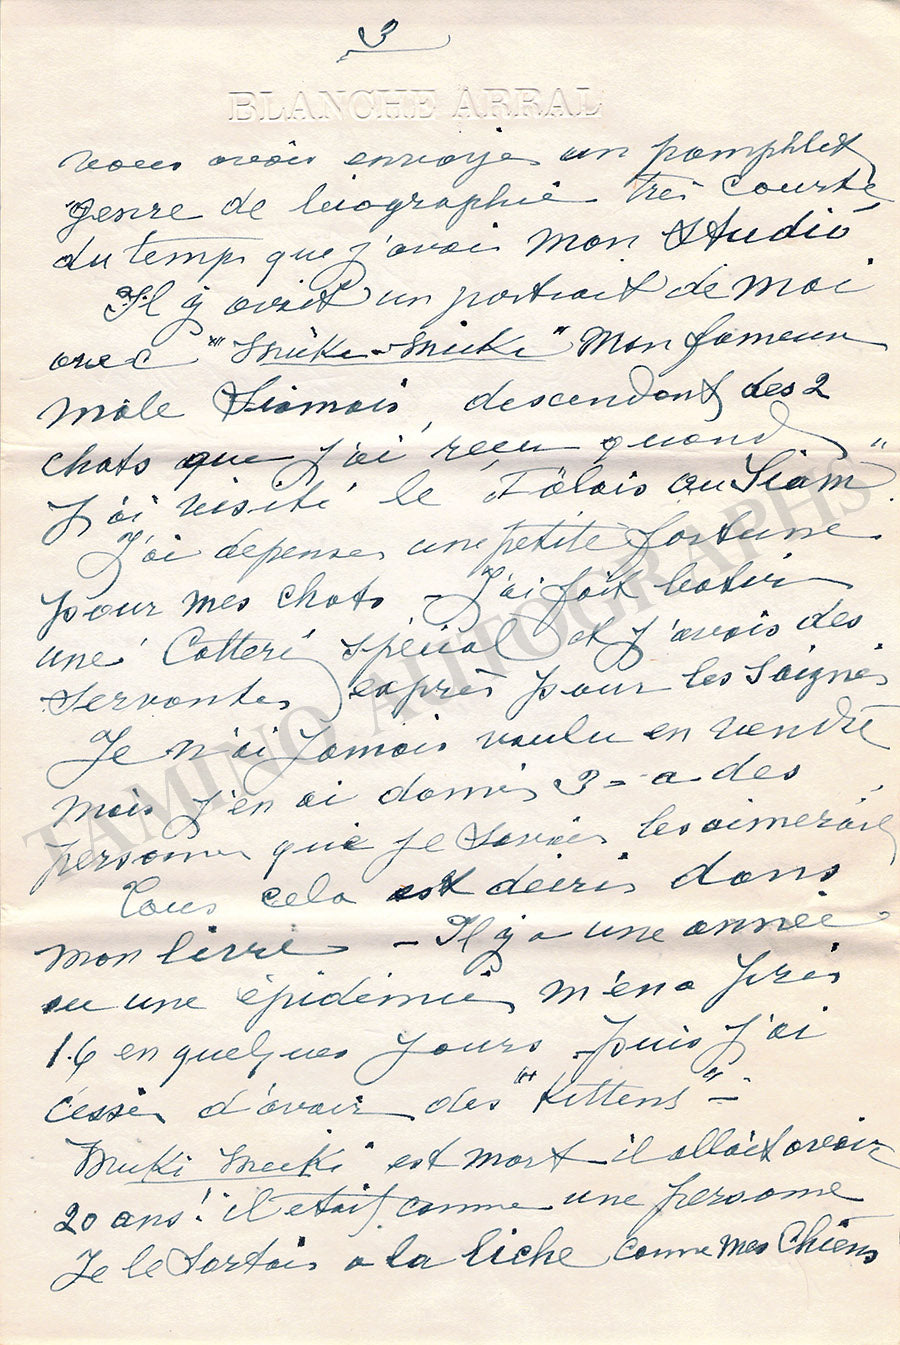 3
BLANCHE ARRAL
vous avais envoyé un pamphlet
genre de biographie très courte
du temps que j'avais mon Studio
Il y avait un portrait de moi
avec "Muki-Muki" mon fameux
mâle Siamois, descendant des 2
chats que j'ai reçu quand
j'ai visité le "Palais au Siam"
J'ai depensé une petite fortune
pour mes chats - J'ai fait batir
une Catteri spécial et j'avais des
servantes exprès pour les soignés
Je n'ai jamais voulu en vendre
mais j'en ai donnés 3 = a des
personnes que je savais les aimerais
Tous cela est décris dans
mon livre - Il y a une année
ou une épidémie m'en a pris
16 en quelques jours puis j'ai
cessé d'avoir des "Kittens" =
Muki Muki est mort il allait avoir
20 ans! il etait comme une personne
Je le sortais a la liche comme mes chiens
TAMINO AUTOGRAPHS